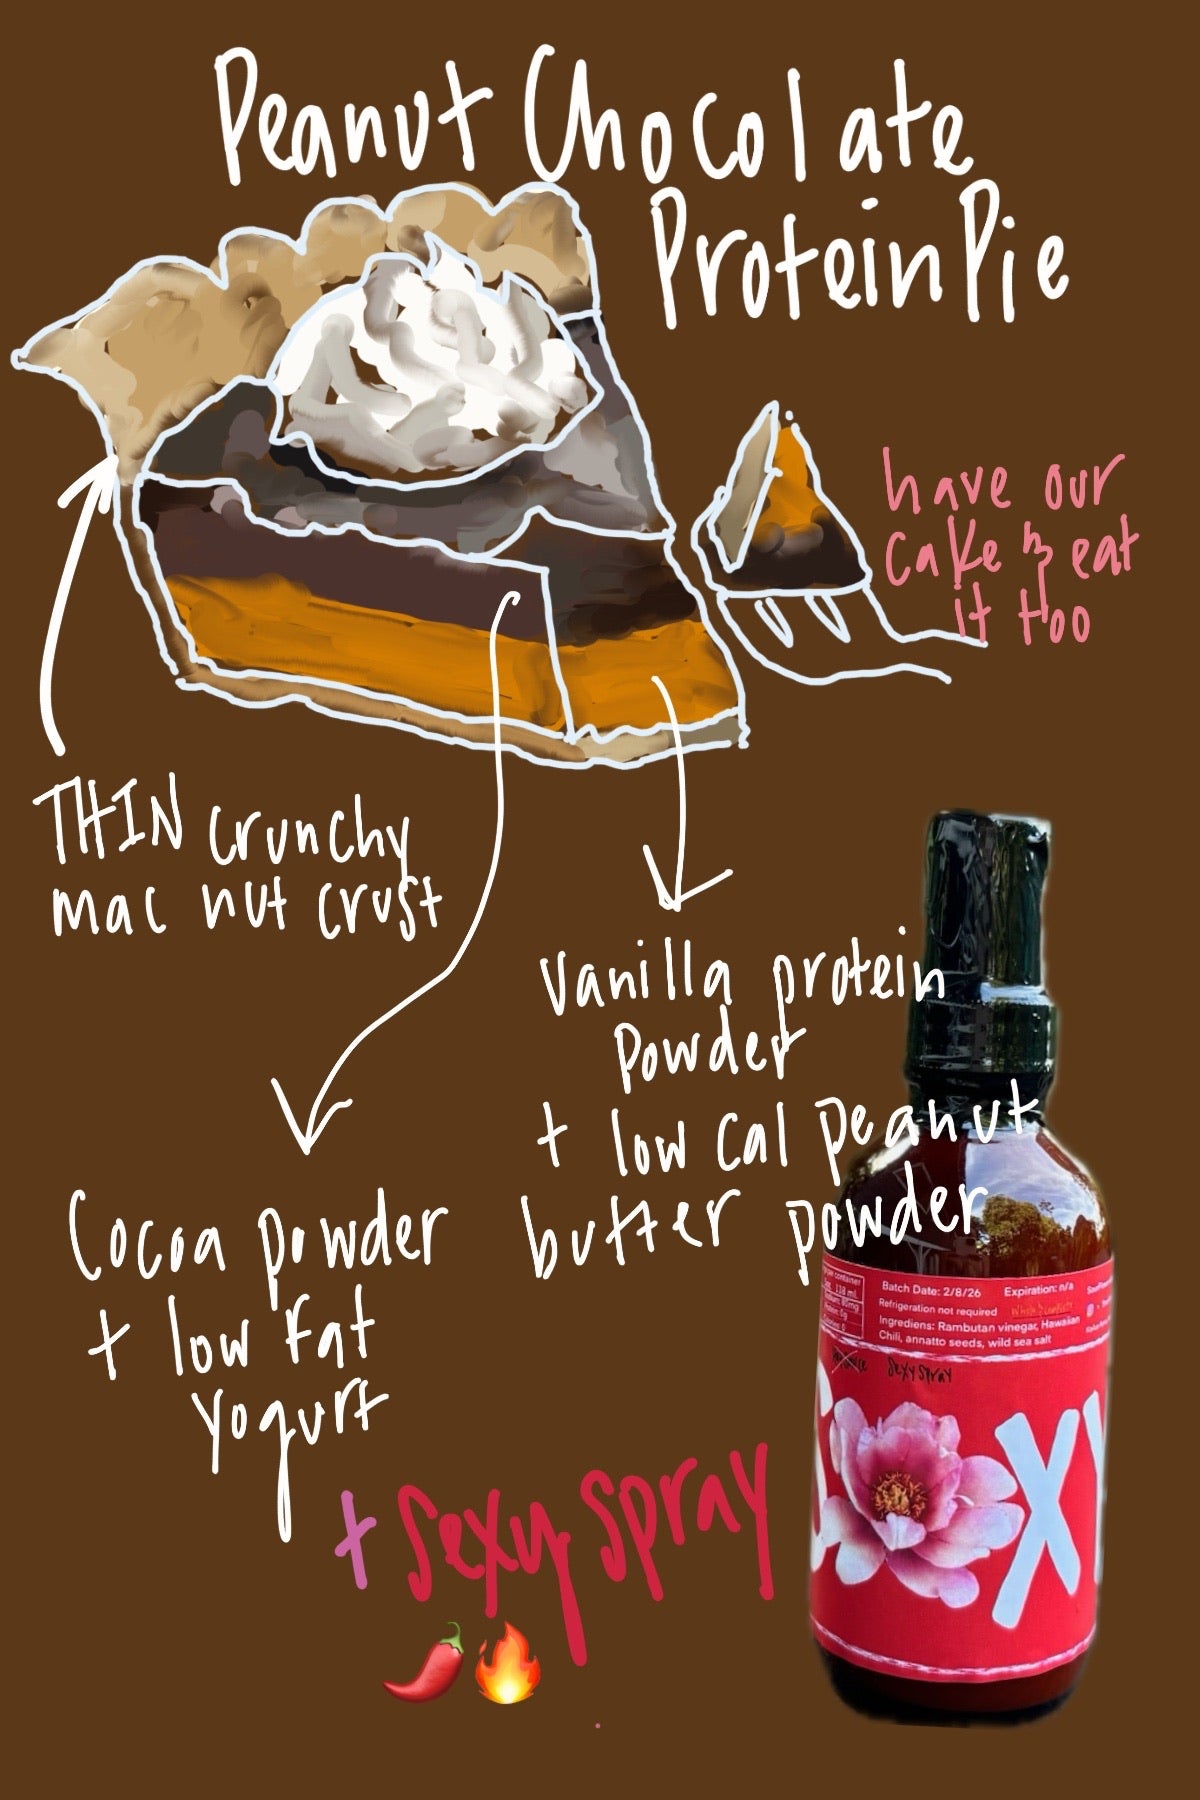 Peanut Chocolate
Protein Pie
have our
cake & eat
it too
THIN crunchy
mac nut crust
Vanilla protein
powder
+ low cal peanut
butter powder
Cocoa powder
+ low fat
yogurt
+ Sexy Spray
🌶️🔥
Batch Date: 2/8/26 Expiration: n/a
Refrigeration not required
Ingrediens: Rambutan vinegar, Hawaiian
Chili, annatto seeds, wild sea salt
Sexy Spray
XY